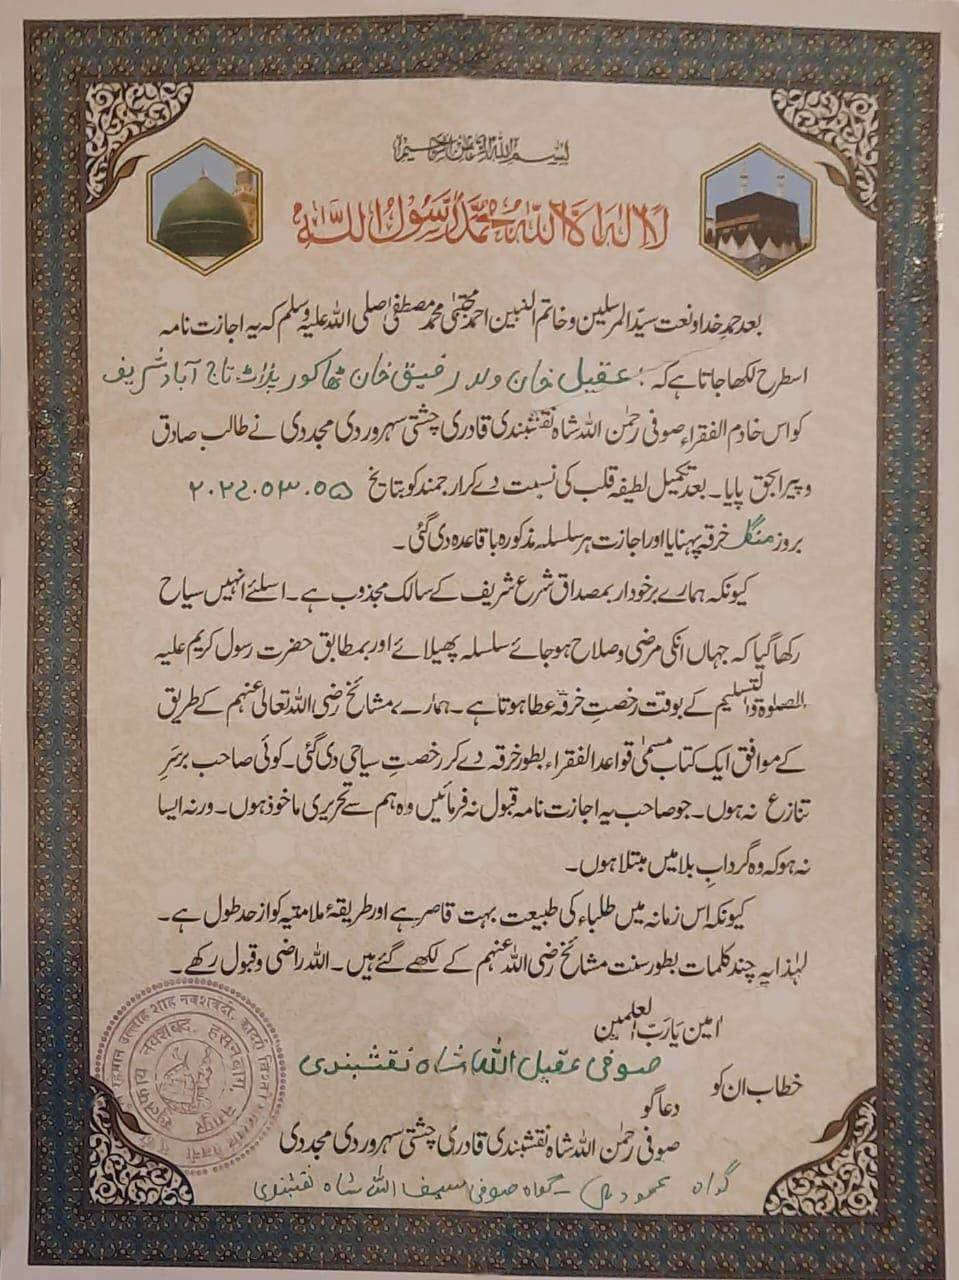 بسم اللہ الرحمن الرحیم
لا الہ الا اللہ محمد رسول اللہ
بعد حمدِ خدا و نعت سیّد المرسلین و خاتم النبین احمد مجتبیٰ محمد مصطفیٰ صلی اللہ علیہ وسلم کہ یہ اجازت نامہ
اسطرح لکھا جاتا ہے کہ: عقیل خان ولد رفیق خان ٹھاکور پلاٹ تاج آباد شریف
کو اس خادم الفقراء صوفی رحمٰن اللہ شاہ نقشبندی قادری چشتی سہروردی مجددی نے طالب صادق
و پیرا بحق پایا۔ بعد تکمیل لطیفہ قلب کی نسبت دے کر ارجمند کو بتاریخ ۲۰۲۴.۰۳.۰۵
بروز منگل خرقہ پہنایا اور اجازت ہر سلسلہ مذکورہ باقاعدہ دی گئی۔
کیونکہ ہمارے برخوردار بمصداق شرع شریف کے سالک مجذوب ہے۔ اسلئے انہیں سیاح
رکھا گیا کہ جہاں انکی مرضی و صلاح ہو جائے سلسلہ پھیلائے اور بمطابق حضرت رسول کریم علیہ
الصلوٰۃ والتسلیم کے بوقت رخصتِ خرقہ عطا ہوتا ہے۔ ہمارے مشائخ رضی اللہ تعالیٰ عنہم کے طریق
کے موافق ایک کتاب مسمیٰ قواعد الفقراء بطور خرقہ دے کر رخصتِ سیاحی دی گئی۔ کوئی صاحب برسَرِ
تنازع نہ ہوں۔ جو صاحب یہ اجازت نامہ قبول نہ فرمائیں وہ ہم سے تحریری ماخوذ ہوں۔ ورنہ ایسا
نہ ہو کہ وہ گردابِ بلا میں مبتلا ہوں۔
کیونکہ اس زمانہ میں طلباء کی طبیعت بہت قاصر ہے اور طریقۂ ملامتیہ کو از حد طول ہے۔
لہٰذا یہ چند کلمات بطور سنت مشائخ رضی اللہ عنہم کے لکھے گئے ہیں۔ اللہ راضی و قبول رکھے۔
امین یا ربّ العٰلمین
خطاب ان کو صوفی عقیل اللہ شاہ نقشبندی
دعا گو
صوفی رحمٰن اللہ شاہ نقشبندی قادری چشتی سہروردی مجددی
گواہ محمود - گواہ صوفی سیف اللہ شاہ نقشبندی
रहमान उल्लाह शाह नक्शबंदी, कादरी
नक्शबंद, हसनबाग, नागपुर